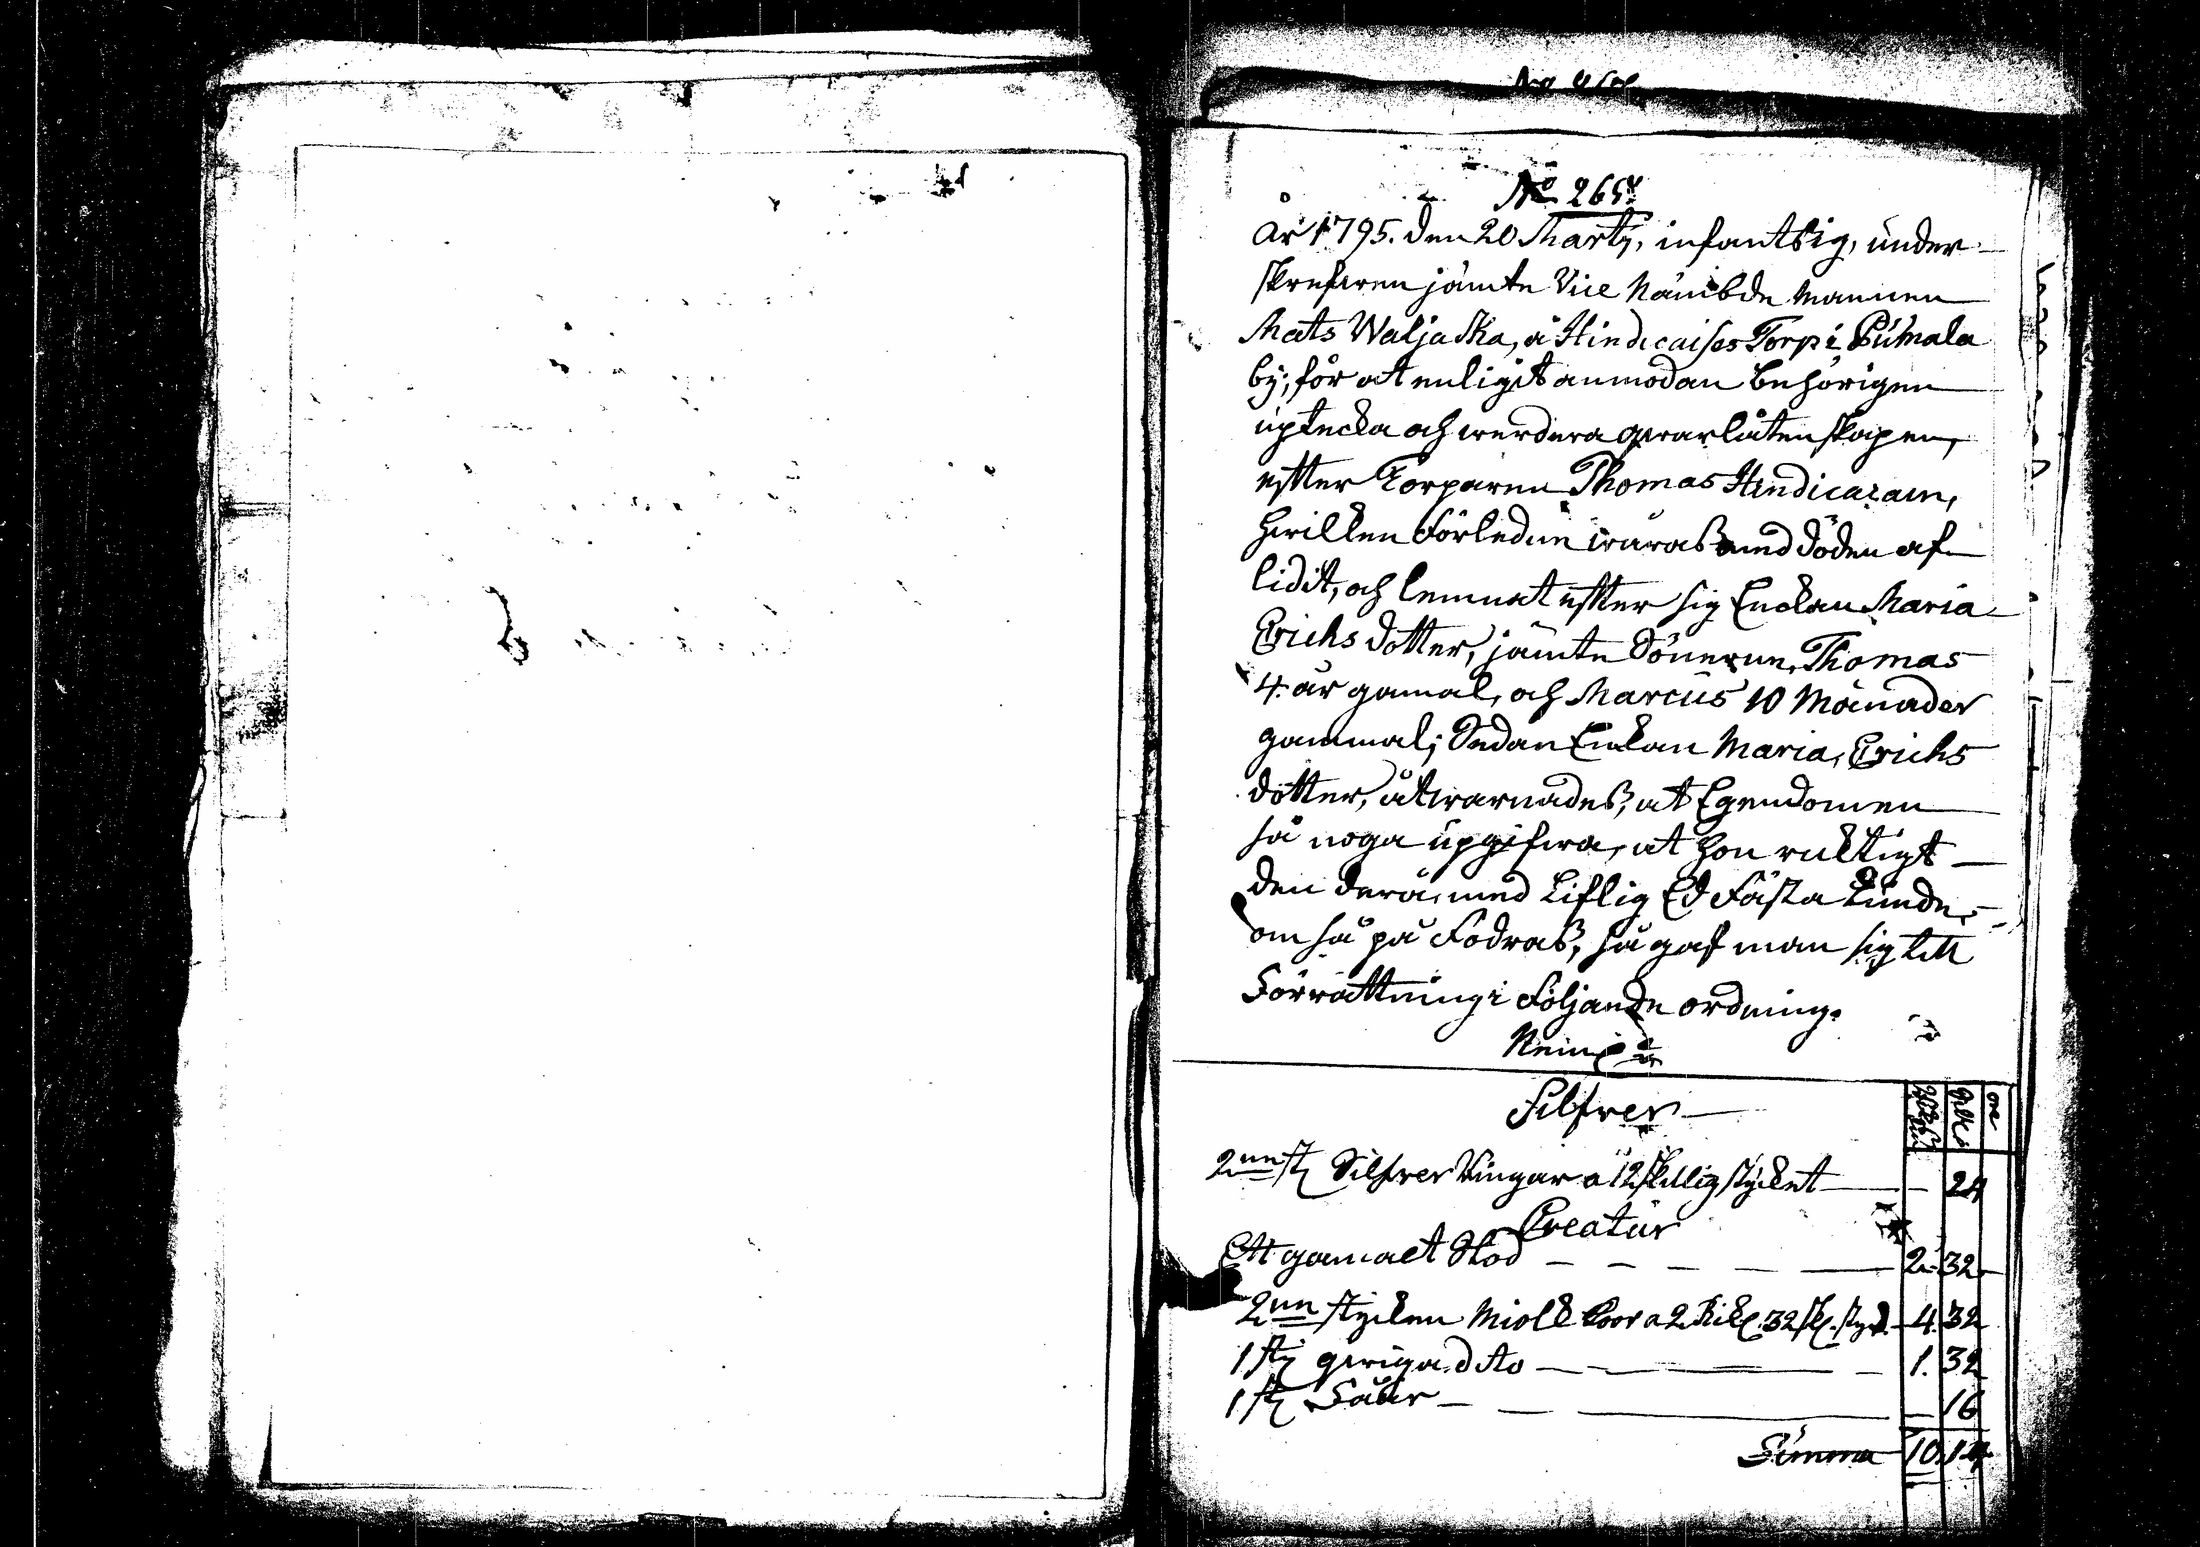 No 265.
År 1795. den 20 Martij, infant sig, under
skrefwen jämte Vice Nämbde Mannen
Mats Waljacka, å Hindicaises Torp i Pumala
by, för at enligit anmodan behörigen
uptecka och werdera qwarlåtenskapen,
effter Torparen Thomas Hindicainen,
hwilken förledne war as med döden af
lidit, och lemnat effter sig Enckan Maria
Erichs dotter, jämte Sönerne, Thomas
4. år gamal, och Marcus 10 Månader
gammal; Sedan Enckan Maria, Erichs
dotter, åtwarnades, at Egendomen
så noga upgifwa, at hon ricktigt
den derå, med Liflig Ed fästa kunde,
om så på fodras, så gaf man sig till
Förrättning i följande ordning.
Silfwer
2nne st Silfwer Ringar a 12 skillig stycket — 24
Creatur
Ett gamalt Stod — 2. 32
2nne stycken Miolk Koor a 2 Rikd. 32 sk. styck. 4. 32
1 st qwiga dito — 1. 32
1 st Fåår — 16
Summa 10. 14